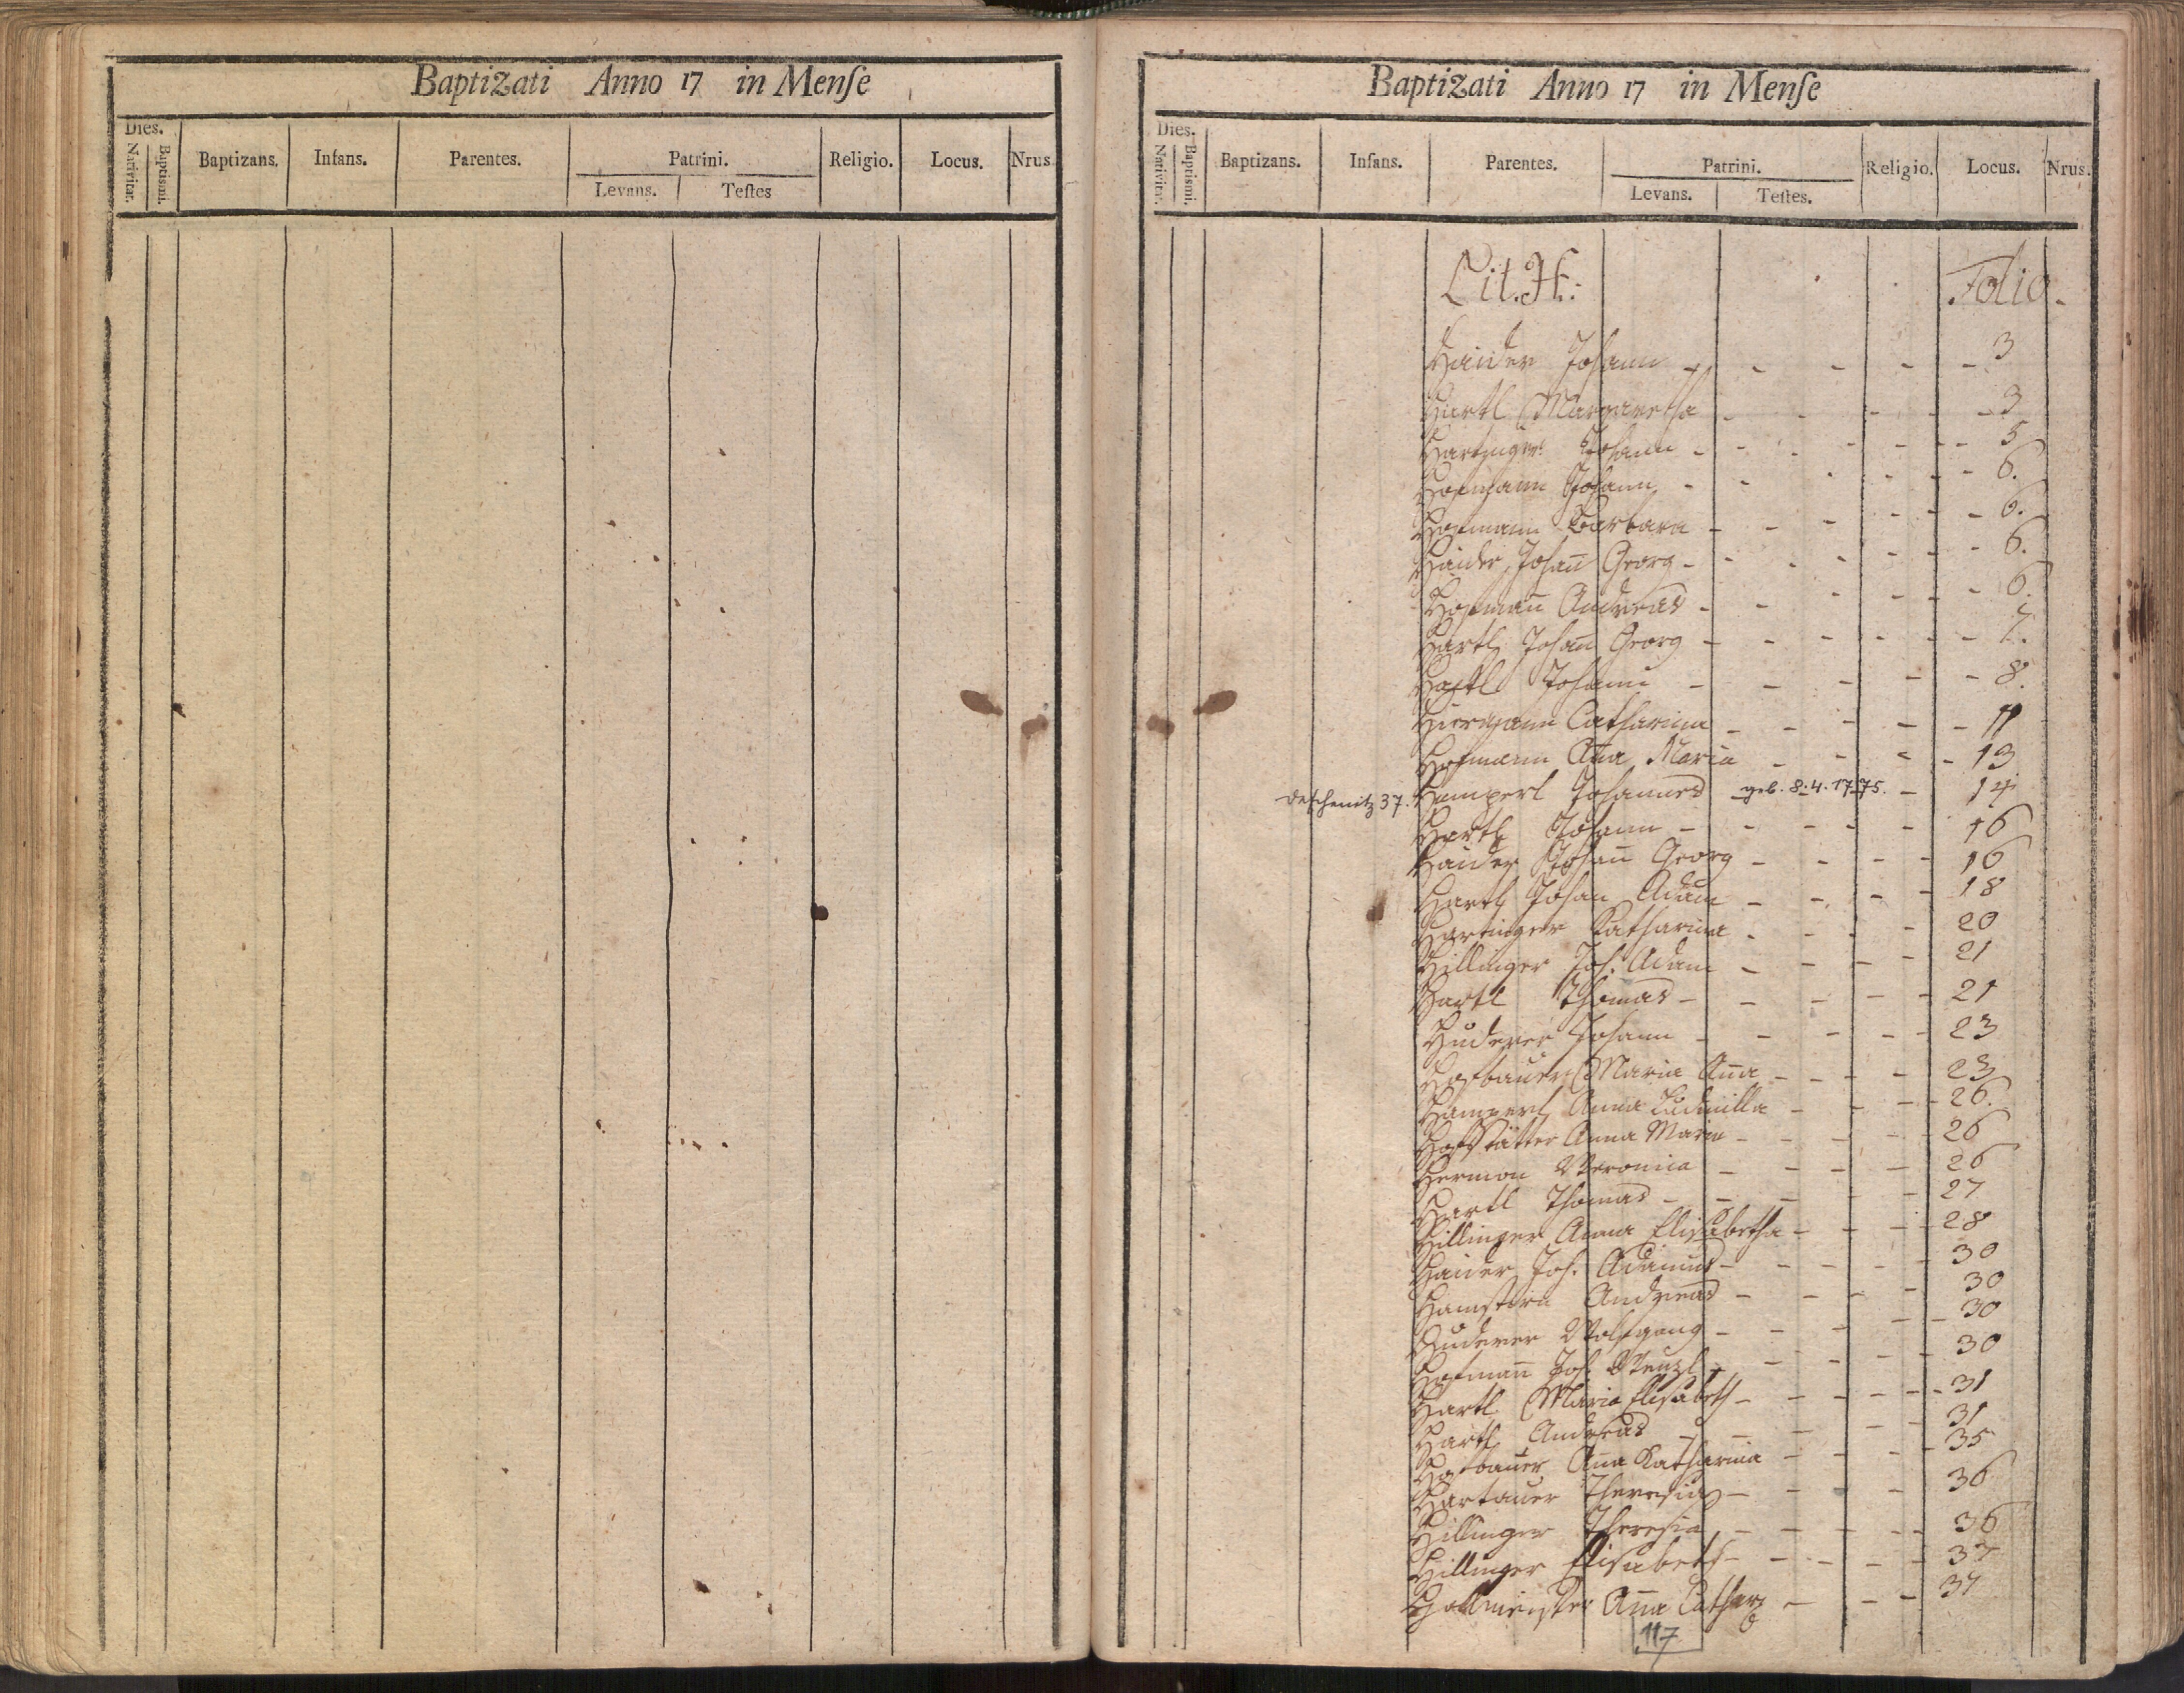 Baptizati Anno 17 in Menſe
Dies.
Nativitat. Baptismi. Baptizans. Infans. Parentes. Patrini. Religio. Locus. Nrus.
Levans. Teſtes
Baptizati Anno 17 in Menſe
Dies.
Nativitat. Baptismi. Baptizans. Infans. Parentes. Patrini. Religio. Locus. Nrus.
Levans. Teſtes.
Lit. H: Folio.
Haider Johann - - - - - 3
Hartl Margaretha - - - - - 3
Hartinger Johann - - - - - 5
Hofmann Johann - - - - - 6.
Hofmann Barbara - - - - - 6.
Haider Johan̄ Georg - - - - - 6.
Hofman̄ Andreas - - - - - 6.
Hartl Johan̄ Georg - - - - - 7.
Johann - - - - - 8.
Catharina - - - - - 11
Hofmann An̄a Maria - - - - 13
Deschenitz 37. Hamperl Johannes geb. 8.4.1775. - 14
Hartl Johann - - - - - 16
Haider Johan̄ Georg - - - - 16
Hartl Johan̄ Adam - - - - 18
Hartinger Catharina - - - - 20
Hillinger Joh. Adam - - - - 21
Hartl Thomas - - - - - 21
Huderer Johann - - - - - 23
Hofbauer Maria An̄a - - - - 23
Hamperl Anna Ludmilla - - - 26.
Hofstätter Anna Maria - - - - 26
Hermon Veronica - - - - 26
Hartl Thomas - - - - - 27
Hillinger Anna Elisabetha - - - 28
Haider Joh. Adamus - - - - 30
Andreas - - - - 30
Huderer Wolfgang - - - - 30
Hofman̄ Joh. Wenzl - - - - 30
Hartl Maria Elisabeth - - - - 31
Hartl Andreas - - - - 31
Hofbauer An̄a Katharina - - - - 35
Hartauer Theresia - - - - 36
Hillinger Theresia - - - - 36
Hillinger Elisabeth - - - - 37
An̄a Cathar - - - 37
117